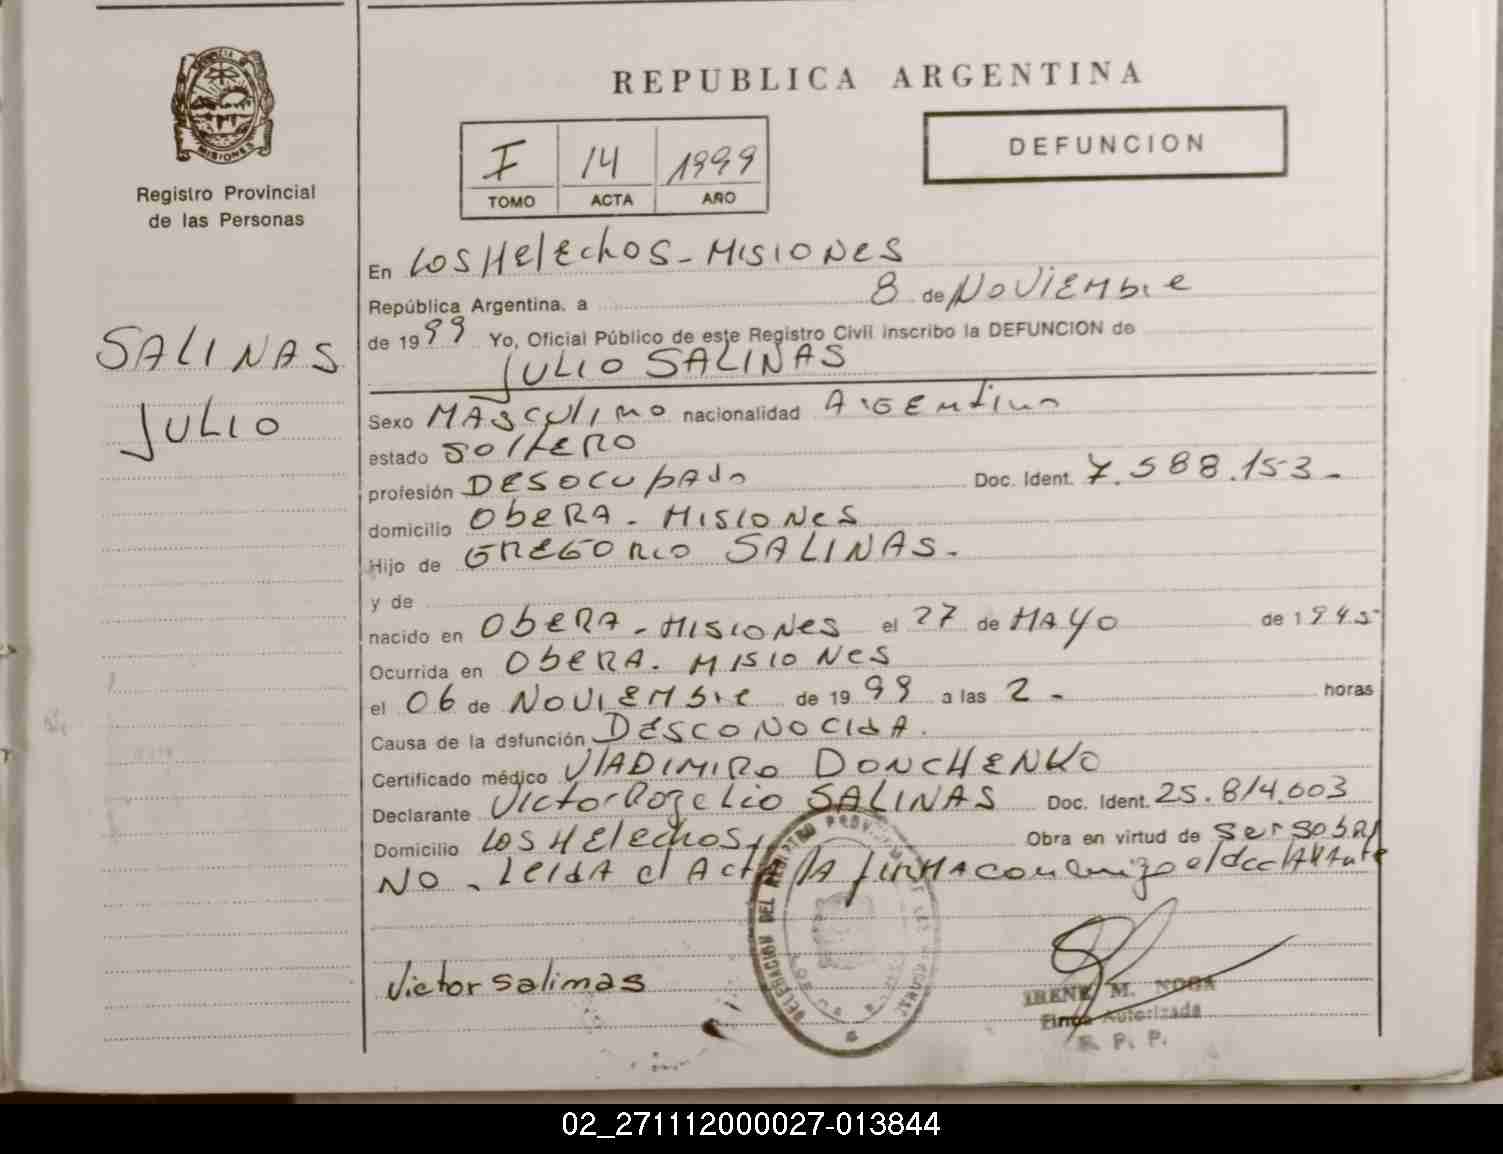 REPUBLICA ARGENTINA
PROVINCIA DE
MISIONES
Registro Provincial
de las Personas
I 14 1999
TOMO ACTA AÑO
DEFUNCION
SALINAS
JULIO
En LOS HElEchos - MISIONES
República Argentina, a 8 de NOVIEMbre
de 1999 Yo, Oficial Público de este Registro Civil inscribo la DEFUNCION de
JULIO SALINAS
Sexo MASCULINO nacionalidad ArgEntino
estado SOltERO
profesión DESOCUpAdo Doc. Ident. 7.588.153-
domicilio ObERA - MISIONES
Hijo de GREGORIO SALINAS.
y de
nacido en ObERA - MISIONES el 27 de MAYO de 1945
Ocurrida en ObERA. MISIONES
el 06 de NOVIEMbre de 1999 a las 2 - horas
Causa de la defunción DESCONOCIdA.
Certificado médico VlADIMIRO DONCHENKO
Declarante VictorRogelio SALINAS Doc. Ident. 25.814.003
Domicilio LOS HElechos, Obra en virtud de ser
NO - LEIdA el ActA lA fIRMA conmigo el declArAnte
Victor salinas
DELEGACION DEL REGISTRO PROVINCIAL DE LAS PERSONAS
IRENE M. NOGA
Firma Autorizada
R. P. P.
02_271112000027-013844